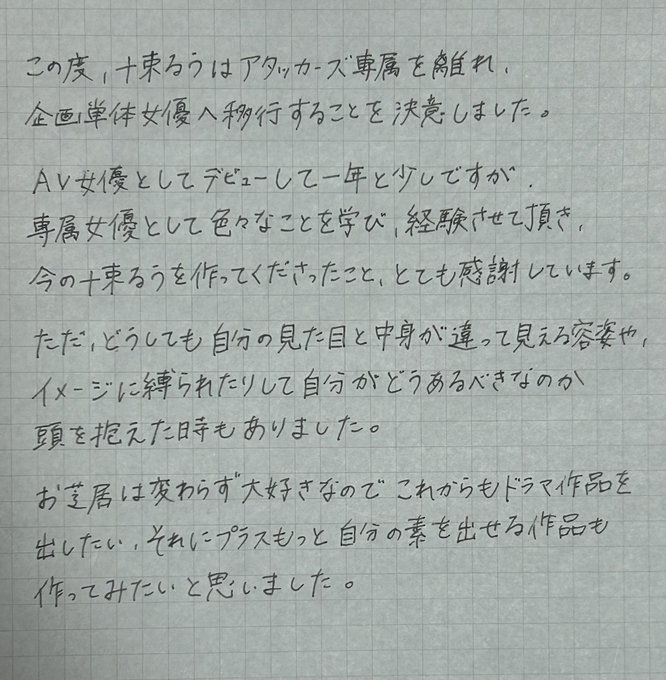 この度、十束るうはアタッカーズ専属を離れ、
企画単体女優へ移行することを決意しました。
AV女優としてデビューして一年と少しですが、
専属女優として色々なことを学び、経験させて頂き、
今の十束るうを作ってくださったこと、とても感謝しています。
ただ、どうしても自分の見た目と中身が違って見える容姿や、
イメージに縛られたりして自分がどうあるべきなのか
頭を抱えた時もありました。
お芝居は変わらず大好きなのでこれからもドラマ作品を
出したい、それにプラスもっと自分の素を出せる作品も
作ってみたいと思いました。